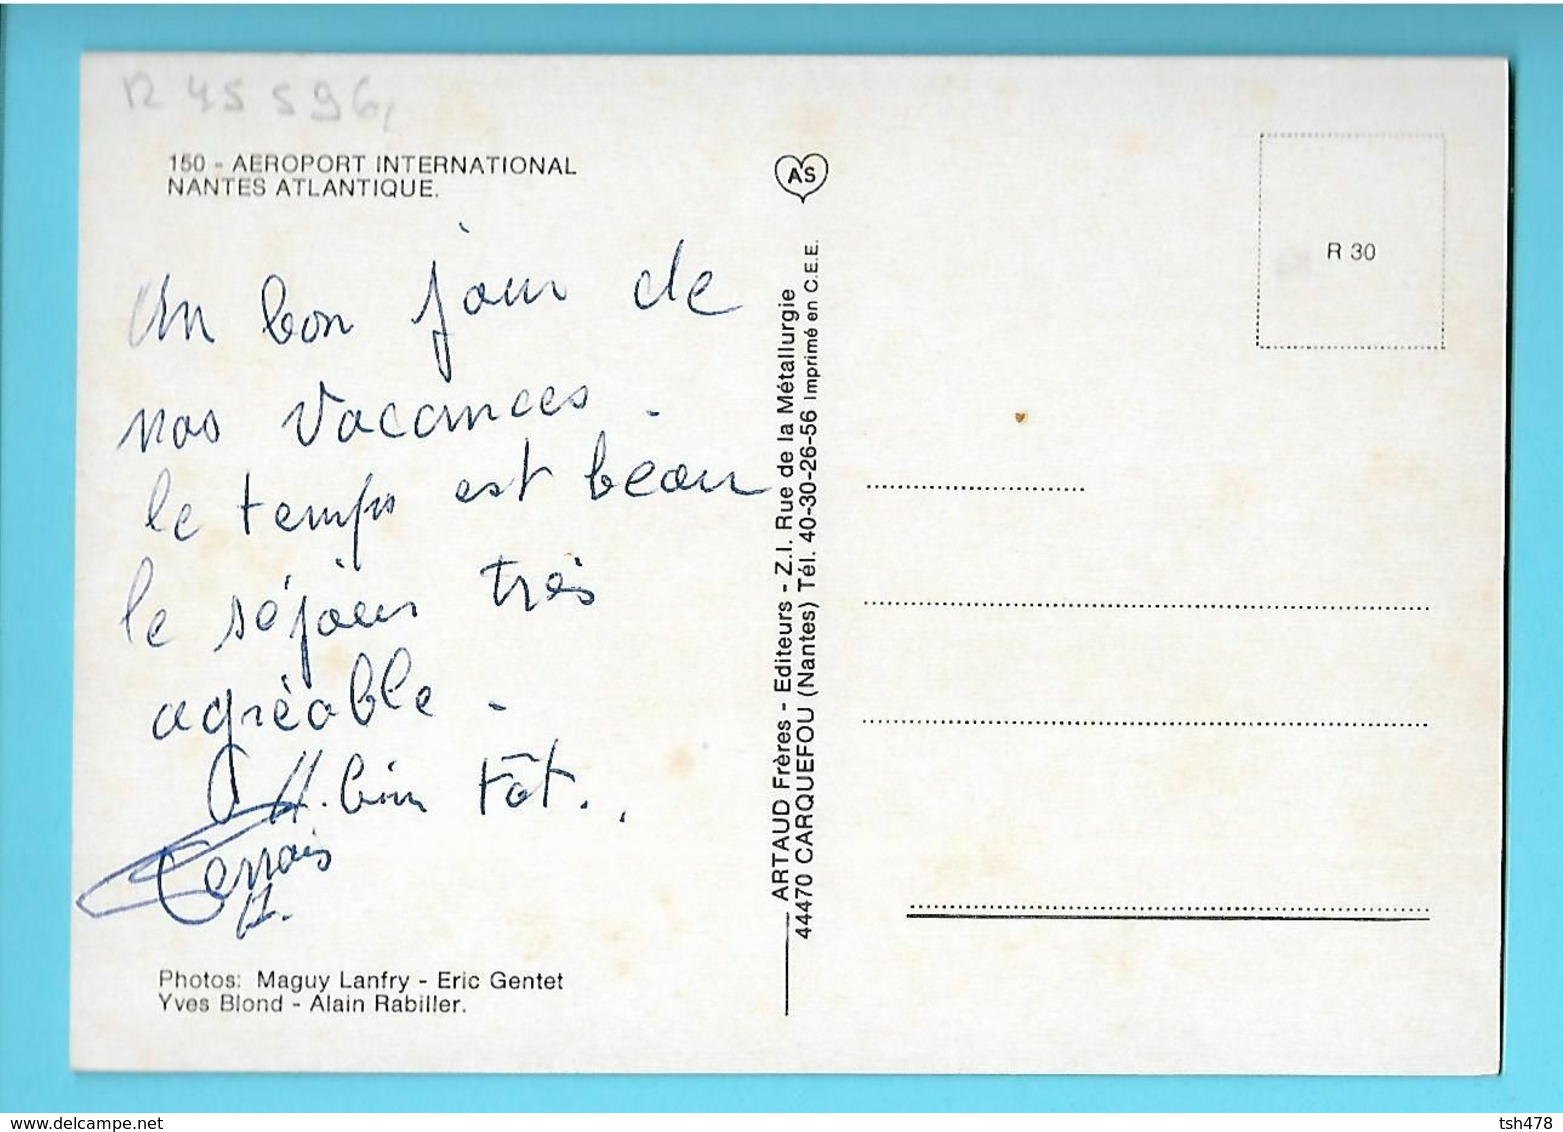 R 45596,
150 - AEROPORT INTERNATIONAL
NANTES ATLANTIQUE.
Un bon jour de
nos vacances.
le temps est beau
le séjour très
agréable.
A bien tôt..
Photos: Maguy Lanfry - Eric Gentet
Yves Blond - Alain Rabiller.
AS
ARTAUD Frères - Editeurs - Z.I. Rue de la Métallurgie
44470 CARQUEFOU (Nantes) Tél. 40-30-26-56 Imprimé en C.E.E.
R 30
www.delcampe.net
tsh478